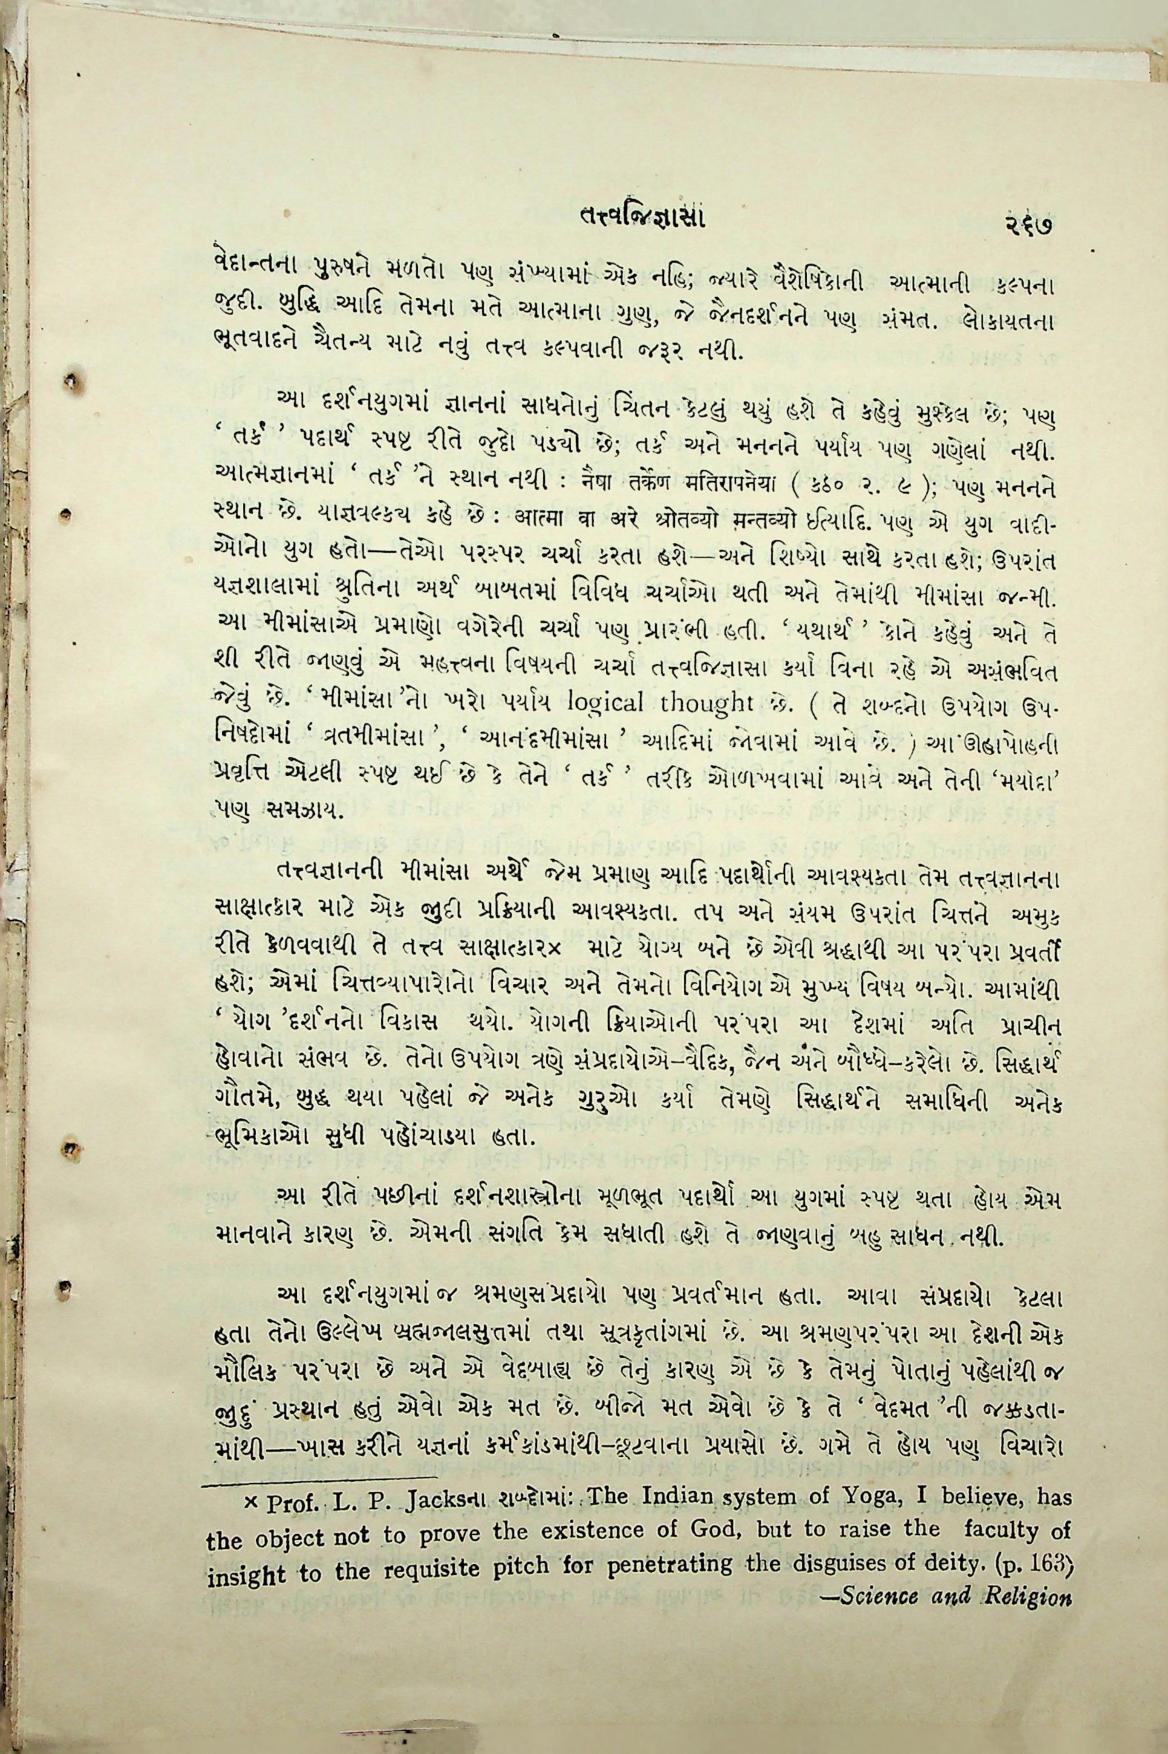 તત્ત્વજિજ્ઞાસા
૨૬૭
વેદાન્તના પુરુષને મળતો પણ સંખ્યામાં એક નહિ; જ્યારે વૈશેષિકોની આત્માની કલ્પના
જુદી. બુદ્ધિ આદિ તેમના મતે આત્માના ગુણ, જે જૈનદર્શનને પણ સંમત. લોકાયતના
ભૂતવાદને ચૈતન્ય માટે નવું તત્ત્વ કલ્પવાની જરૂર નથી.
આ દર્શનયુગમાં જ્ઞાનનાં સાધનોનું ચિંતન કેટલું થયું હશે તે કહેવું મુશ્કેલ છે; પણ
‘ તર્ક ’ પદાર્થ સ્પષ્ટ રીતે જુદો પડ્યો છે; તર્ક અને મનનને પર્યાય પણ ગણેલાં નથી.
આત્મજ્ઞાનમાં ‘ તર્ક ’ને સ્થાન નથી : नैषा तर्केण मतिरापनेया ( કઠ૦ ૨. ૯ ); પણ મનનને
સ્થાન છે. યાજ્ઞવલ્ક્ય કહે છે : आत्मा वा अरे श्रोतव्यो मन्तव्यो ઈત્યાદિ. પણ એ યુગ વાદી-
ઓનો યુગ હતો—તેઓ પરસ્પર ચર્ચા કરતા હશે—અને શિષ્યો સાથે કરતા હશે; ઉપરાંત
યજ્ઞશાલામાં શ્રુતિના અર્થ બાબતમાં વિવિધ ચર્ચાઓ થતી અને તેમાંથી મીમાંસા જન્મી.
આ મીમાંસાએ પ્રમાણો વગેરેની ચર્ચા પણ પ્રારંભી હતી. ‘ યથાર્થ ’ કોને કહેવું અને તે
શી રીતે જાણવું એ મહત્ત્વના વિષયની ચર્ચા તત્ત્વજિજ્ઞાસા કર્યા વિના રહે એ અસંભવિત
જેવું છે. ‘ મીમાંસા ’નો ખરો પર્યાય logical thought છે. ( તે શબ્દનો ઉપયોગ ઉપ-
નિષદોમાં ‘ વ્રતમીમાંસા ’, ‘ આનંદમીમાંસા ’ આદિમાં જોવામાં આવે છે. ) આ ઊહાપોહની
પ્રવૃત્તિ એટલી સ્પષ્ટ થઈ છે કે તેને ‘ તર્ક ’ તરીકે ઓળખવામાં આવે અને તેની ‘મર્યાદા’
પણ સમઝાય.
તત્ત્વજ્ઞાનની મીમાંસા અર્થે જેમ પ્રમાણ આદિ પદાર્થોની આવશ્યકતા તેમ તત્ત્વજ્ઞાનના
સાક્ષાત્કાર માટે એક જુદી પ્રક્રિયાની આવશ્યકતા. તપ અને સંયમ ઉપરાંત ચિત્તને અમુક
રીતે કેળવવાથી તે તત્ત્વ સાક્ષાત્કાર× માટે યોગ્ય બને છે એવી શ્રદ્ધાથી આ પરંપરા પ્રવર્તી
હશે; એમાં ચિત્તવ્યાપારોનો વિચાર અને તેમનો વિનિયોગ એ મુખ્ય વિષય બન્યો. આમાંથી
‘ યોગ ’દર્શનનો વિકાસ થયો. યોગની ક્રિયાઓની પરંપરા આ દેશમાં અતિ પ્રાચીન
હોવાનો સંભવ છે. તેનો ઉપયોગ ત્રણે સંપ્રદાયોએ–વૈદિક, જૈન અને બૌધ્ધે–કરેલો છે. સિદ્ધાર્થ
ગૌતમે, બુદ્ધ થયા પહેલાં જે અનેક ગુરુઓ કર્યા તેમણે સિદ્ધાર્થને સમાધિની અનેક
ભૂમિકાઓ સુધી પહોંચાડ્યા હતા.
આ રીતે પછીનાં દર્શનશાસ્ત્રોના મૂળભૂત પદાર્થો આ યુગમાં સ્પષ્ટ થતા હોય એમ
માનવાને કારણ છે. એમની સંગતિ કેમ સધાતી હશે તે જાણવાનું બહુ સાધન નથી.
આ દર્શનયુગમાં જ શ્રમણસંપ્રદાયો પણ પ્રવર્તમાન હતા. આવા સંપ્રદાયો કેટલા
હતા તેનો ઉલ્લેખ બ્રહ્મજાલસુત્તમાં તથા સૂત્રકૃતાંગમાં છે. આ શ્રમણપરંપરા આ દેશની એક
મૌલિક પરંપરા છે અને એ વેદબાહ્ય છે તેનું કારણ એ છે કે તેમનું પોતાનું પહેલાંથી જ
જુદું પ્રસ્થાન હતું એવો એક મત છે. બીજો મત એવો છે કે તે ‘ વેદમત ’ની જક્કડતા-
માંથી—ખાસ કરીને યજ્ઞનાં કર્મકાંડમાંથી–છૂટવાના પ્રયાસો છે. ગમે તે હોય પણ વિચારો
× Prof. L. P. Jacksના શબ્દોમાં: The Indian system of Yoga, I believe, has
the object not to prove the existence of God, but to raise the faculty of
insight to the requisite pitch for penetrating the disguises of deity. (p. 163)
—Science and Religion